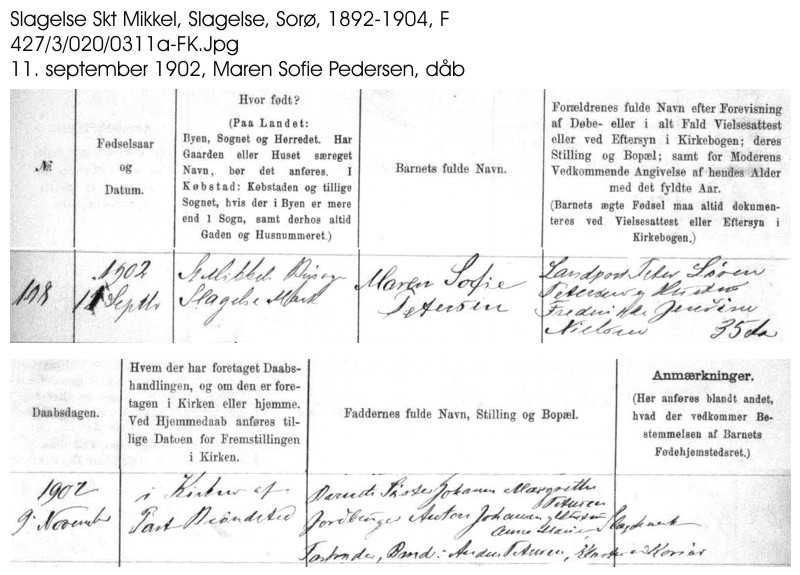 Slagelse Skt Mikkel, Slagelse, Sorø, 1892-1904, F
427/3/020/0311a-FK.Jpg
11. september 1902, Maren Sofie Pedersen, dåb
№
Fødselsaar
og
Datum.
Hvor født?
(Paa Landet:
Byen, Sognet og Herredet. Har
Gaarden eller Huset særeget
Navn, bør det anføres. I
Købstad: Købstaden og tillige
Sognet, hvis der i Byen er mere
end 1 Sogn, samt derhos altid
Gaden og Husnummeret.)
Barnets fulde Navn.
Forældrenes fulde Navn efter Forevisning
af Døbe- eller i alt Fald Vielsesattest
eller ved Eftersyn i Kirkebogen; deres
Stilling og Bopæl; samt for Moderens
Vedkommende Angivelse af hendes Alder
med det fyldte Aar.
(Barnets ægte Fødsel maa altid dokumen-
teres ved Vielsesattest eller Eftersyn i
Kirkebogen.)
1902
11 Septbr
St Mikkels
Slagelse Mark
Maren Sofie
Petersen
Landpost Peter Søren
Petersen og Hustru
Frederikke Jensine
Nielsen 35 Aa
Daabsdagen.
Hvem der har foretaget Daabs-
handlingen, og om den er fore-
tagen i Kirken eller hjemme.
Ved Hjemmedaab anføres til-
lige Datoen for Fremstillingen
i Kirken.
Faddernes fulde Navn, Stilling og Bopæl.
Anmærkninger.
(Her anføres blandt andet,
hvad der vedkommer Be-
stemmelsen af Barnets
Fødehjemstedsret.)
1902
9 November
i Kirken af
Past Bröndsted
Barnets Søster Johanne Margrethe
Petersen
Jordbruger Anton Johansen
Anders Petersen, Korsør